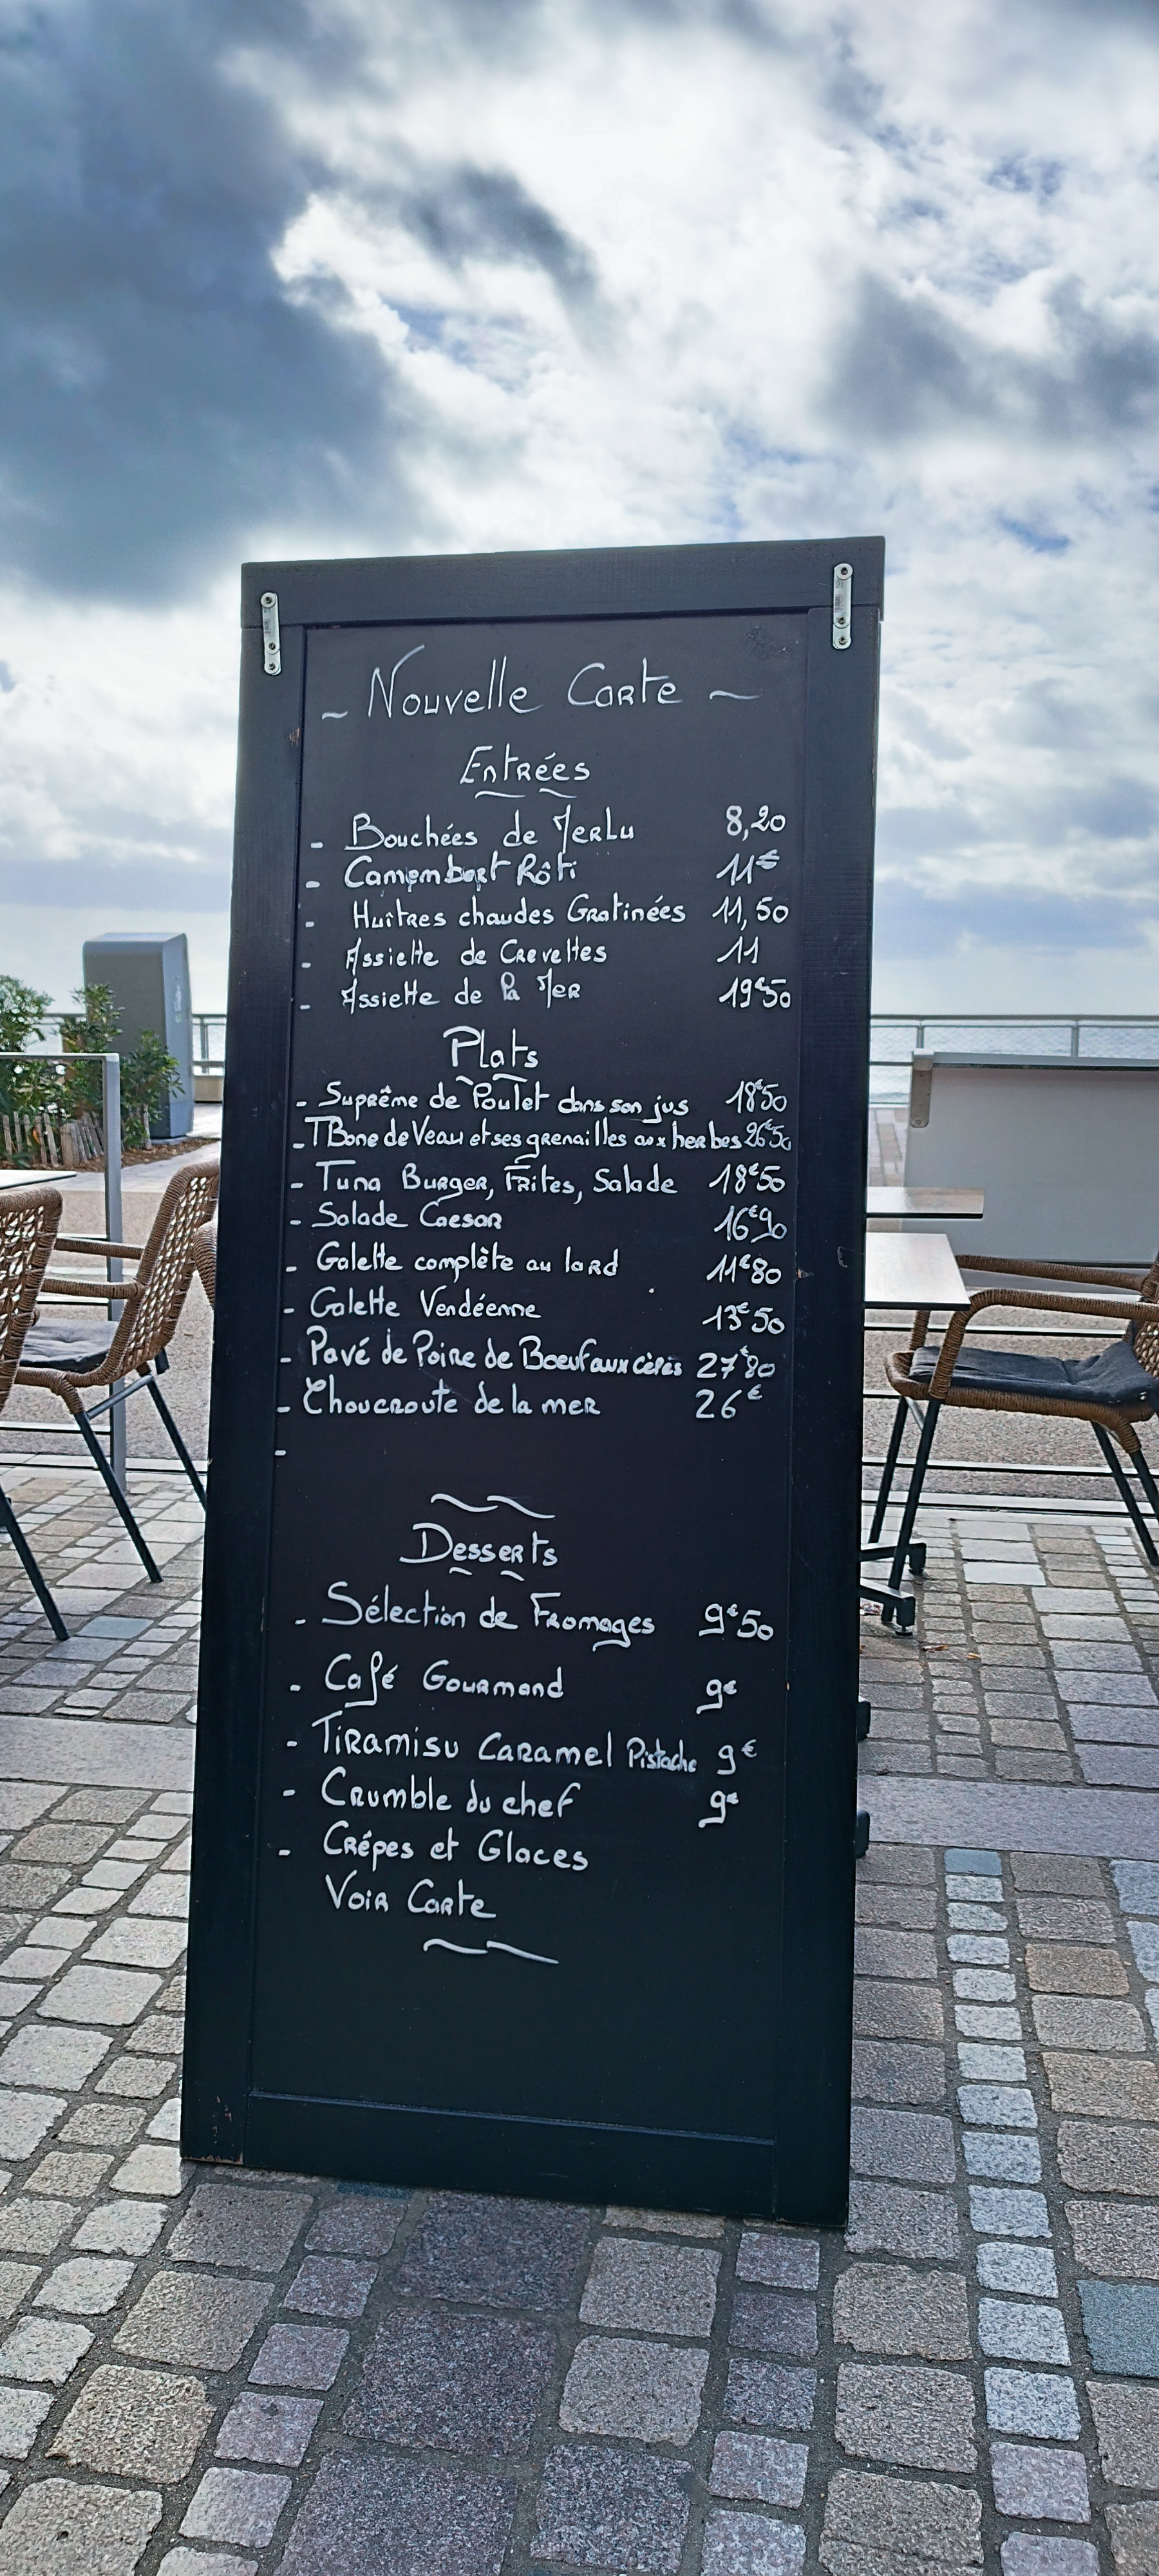 ~ Nouvelle Carte ~
Entrées
- Bouchées de Merlu 8,20
- Camembert Rôti 11€
- Huîtres chaudes Gratinées 11,50
- Assiette de Crevettes 11
- Assiette de la Mer 19€50
Plats
- Suprême de Poulet dans son jus 18€50
- TBone de Veau et ses grenailles aux herbes 26€50
- Tuna Burger, Frites, Salade 18€50
- Salade Caesar 16€90
- Galette complète au lard 11€80
- Galette Vendéenne 13€50
- Pavé de Poire de Boeuf aux cèpes 27€80
- Choucroute de la mer 26€
-
Desserts
- Sélection de Fromages 9€50
- Café Gourmand 9€
- Tiramisu Caramel Pistache 9€
- Crumble du chef 9€
- Crêpes et Glaces
Voir Carte